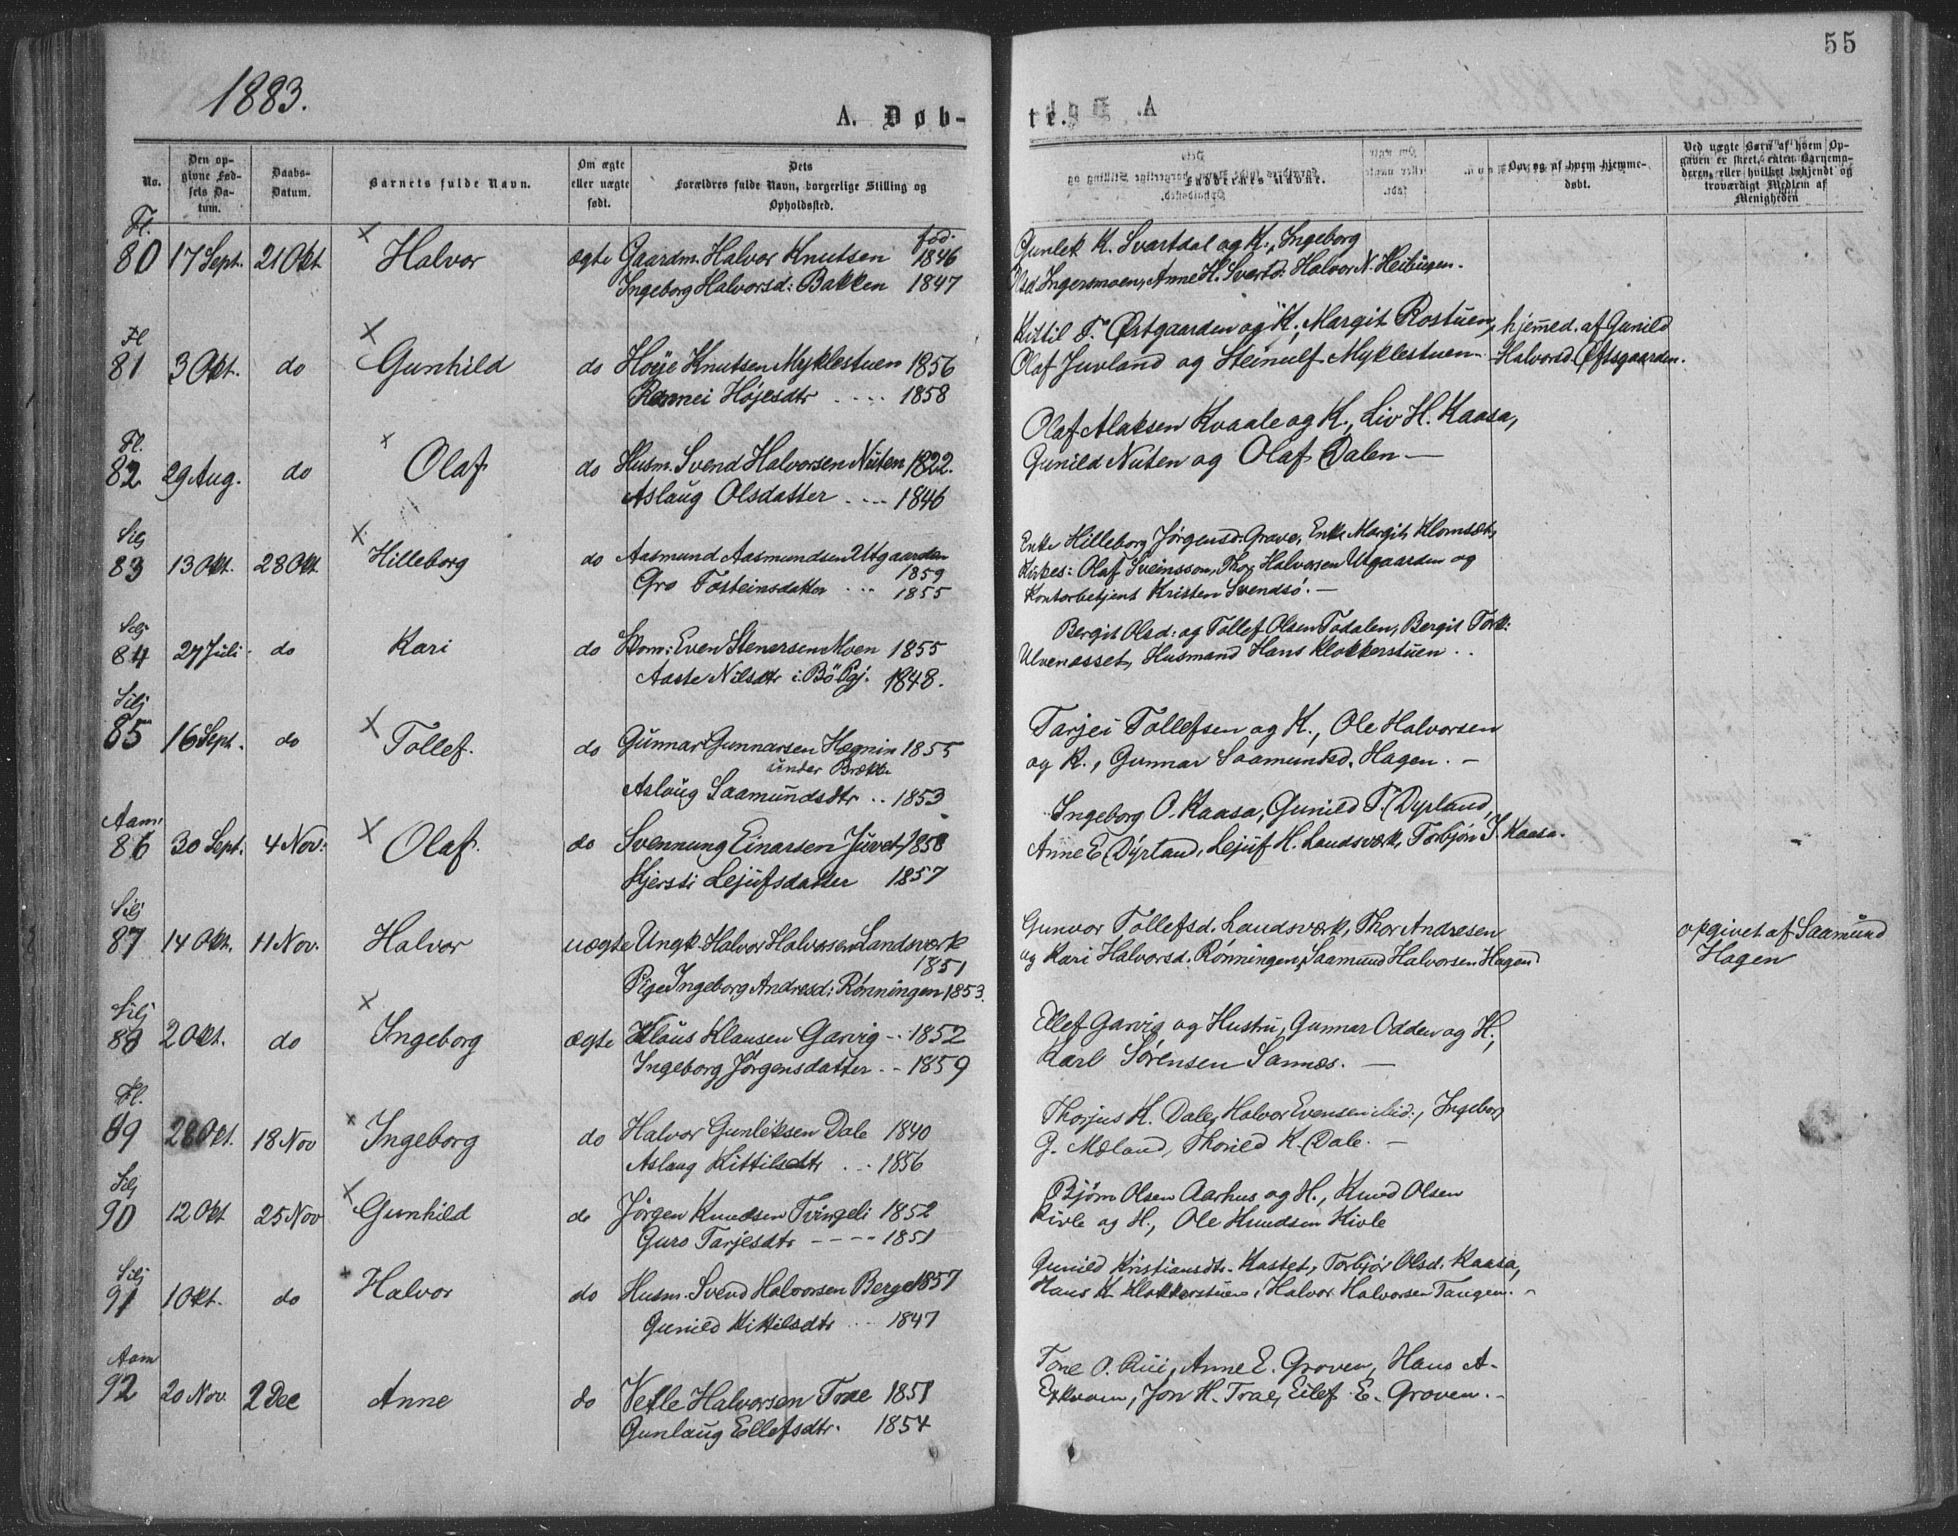 55
1883.
A. Døb-
te.
No.
Den op-
givne Fød-
sels Da-
tum.
Daabs-
Datum.
Barnets fulde Navn.
Om ægte
eller uægte
født.
Dets
Forældres fulde Navn, borgerlige Stilling og
Opholdssted.
Faddernes Navne.
Om og af hvem hjemme-
døbt.
Ved uægte Børn af hvem Op-
gaven er skeet, enten Barnemo-
deren, eller hvilket bekjendt og
troværdigt Medlem af
Menigheden
Fl.
80 17 Sept. 21 Okt Halvor ægte Gaardm. Halvor Knutsen fød. 1846
Ingeborg Halvorsd: Bakken 1847
Gunlek K. Svartdal og K., Ingeborg
Olsd. Ingersmoen, Anne H. Svartd: Halvor N. Heibugen.
Fl
81 3 Okt. do Gunhild do Høije Knutsen Myklestuen 1856
Rannei Højesdtr .... 1858
Kittil T. Østgaarden og K., Margit Rostuen,
Olaf Juvland og Steinulf Myklestuen.
hjemmed. af Gunild
Halvorsd. Øftsgaarden.
Fl.
82 29 Aug. do Olaf do Husm. Svend Halvorsen Nuten 1822.
Aslaug Olsdatter .... 1846
Olaf Aslaksen Kvaale og K., Liv H. Kaasa,
Gunild Nuten og Olaf Dalen —
Silj
83 13 Okt. 28 Okt. Hilleborg do Aasmund Aasmundsen Utgaarden
1859
Gro Tosteinsdatter ... 1855
Enke Hilleborg Jørgensd. Grave, Enke Margit Klomset,
Kirkes: Olaf Sveinsson, Thor Halvorsen Utgaarden og
Kontorbetjent Kristen Svendsø. —
Selj
84 27 Juli do Kari do Skom: Even Stenersen Moen 1855
Aaste Nilsdtr i Bö Pgj. 1848.
Bergit Olsd: og Tollef Olsen Todalen, Bergit Tork:
Ulvenesset, Husmand Hans Klokkerstuen ..
Silj
85 16 Sept. do Tollef. do Gunnar Gunnarsen Hægnin 1855
under Brække
Aslaug Saamundsdtr .. 1853
Tarjei Tollefsen og K., Ole Halvorsen
og K., Gunnar Saamundsd. Hagen. —
Aam:
86 30 Sept. 4 Nov: Olaf. do Svennung Einarsen Juvet 1858
Kjersti Lejufsdatter 1857
Ingeborg O. Kaasa, Gunild T. Dyrland,
Anne E. Dyrland, Lejuf H. Landsværk, Torbjøn S. Kaasa.
Silj
87 14 Okt. 11 Nov. Halvor uægte Ungk. Halvor Halvorsen Landsværk
1851
Pige Ingeborg Andresd: Rönningen 1853.
Gunvor Tollefsd. Landsværk, Thor Andresen
og Kari Halvorsd. Rönningen, Saamund Halvorsen Hagen
opgivet af Saamund
Hagen
Silj
88 2 Okt. do Ingeborg ægte Klaus Klausen Garvig .. 1852
Ingeborg Jørgensdatter .. 1859
Ellef Garvig og Hustru, Gunnar Odden og H.,
Karl Sørensen Sannæs. —
Fl.
89 28 Okt. 18 Nov Ingeborg do Halvor Gunleksen Dale 1840
Aslaug Kittilsdtr ... 1856
Thorjus K. Dale, Halvor Evensen Lid:, Ingeborg
G. Mæland, Thorild K. Dale. —
Silj
90 12 Okt 25 Nov Gunhild do Jörgen Knudsen Tvingeli 1852
Guro Tarjesdtr ---- 1851
Bjørn Olsen Aarhus og H., Knud Olsen
Kivle og H., Ole Knudsen Kivle
Silj
91 1 Okt. do Halvor do Husm. Svend Halvorsen Berge 1857
Gunild Kittilsdtr ... 1847
Gunild Kristiansdtr. Kastet, Torbjør Olsd. Kaasa,
Hans K. Klokkerstuen, Halvor Halvorsen Tangen. -
Aam
92 20 Nov. 2 Dec Anne do Vetle Halvorsen Traae 1851
Gunlaug Ellefsdtr. 1854
Tone O. Rui, Anne E. Groven, Hans A.
Jon H. Traae, Eilef E. Groven. -